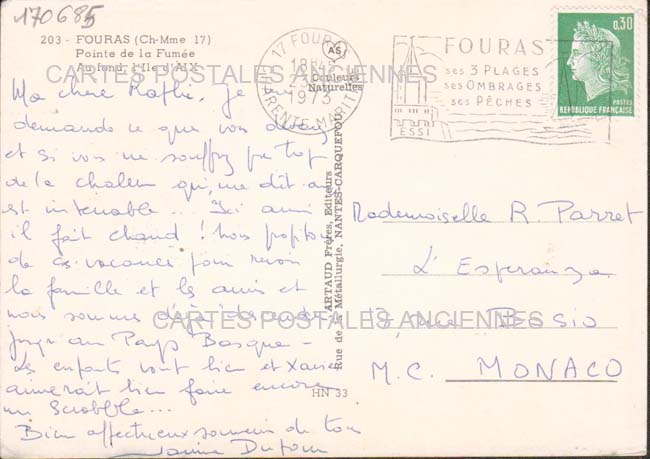 170685
203 - FOURAS (Ch-Mme 17)
Pointe de la Fumée
Au fond, l'Ile d'AIX
CARTES POSTALES ANCIENNES
17 FOURAS
18H45
1973
CHARENTE MARITIME
AS
Couleurs
Naturelles
FOURAS
ses 3 PLAGES
ses OMBRAGES
ses PÊCHES
ESSI
0,30
POSTES
RÉPUBLIQUE FRANÇAISE
Ma chère Raphie, je me
demande ce que vous devenez
et si vous ne souffrez pas trop
de la chaleur qui, me dit-on
est intenable... Ici aussi
il fait chaud ! Nous profitons
de ces vacances pour revoir
la famille et les amis et
nous sommes déjà descendus
jusqu'au Pays Basque -
Les enfants vont bien et Xavier
aimerait bien faire encore
un Scrabble...
Bien affectueux souvenir de tous
Janine Dufour
ARTAUD Frères, Editeurs
Rue de la Métallurgie, NANTES-CARQUEFOU
HN 33
Mademoiselle R. Parret
L'Esperanza
3, rue Bosio
M.C. MONACO
CARTES POSTALES ANCIENNES